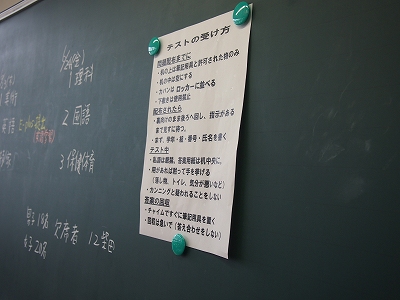 理科
2 国語
3 保健体育
男子19名 欠席者 12
女子20名
テストの受け方
問題配布までに
・机の上は筆記用具と許可された物のみ
・机の中は空にする
・カバンは ロッカーに並べる
・下敷きは使用禁止
配布されたら
・裏向けのまま後ろへ回し、指示がある
まで見ずに待つ。
・まず、学年・組・番号・氏名を書く
テスト中
・私語は厳禁、答案用紙は机中央に。
・用があれば黙って手を挙げる
（落し物、トイレ、気分が悪いなど）
・カンニングと疑われることをしない
答案の回収
・チャイムですぐに筆記用具を置く
・回収は急いで（答え合わせをしない）